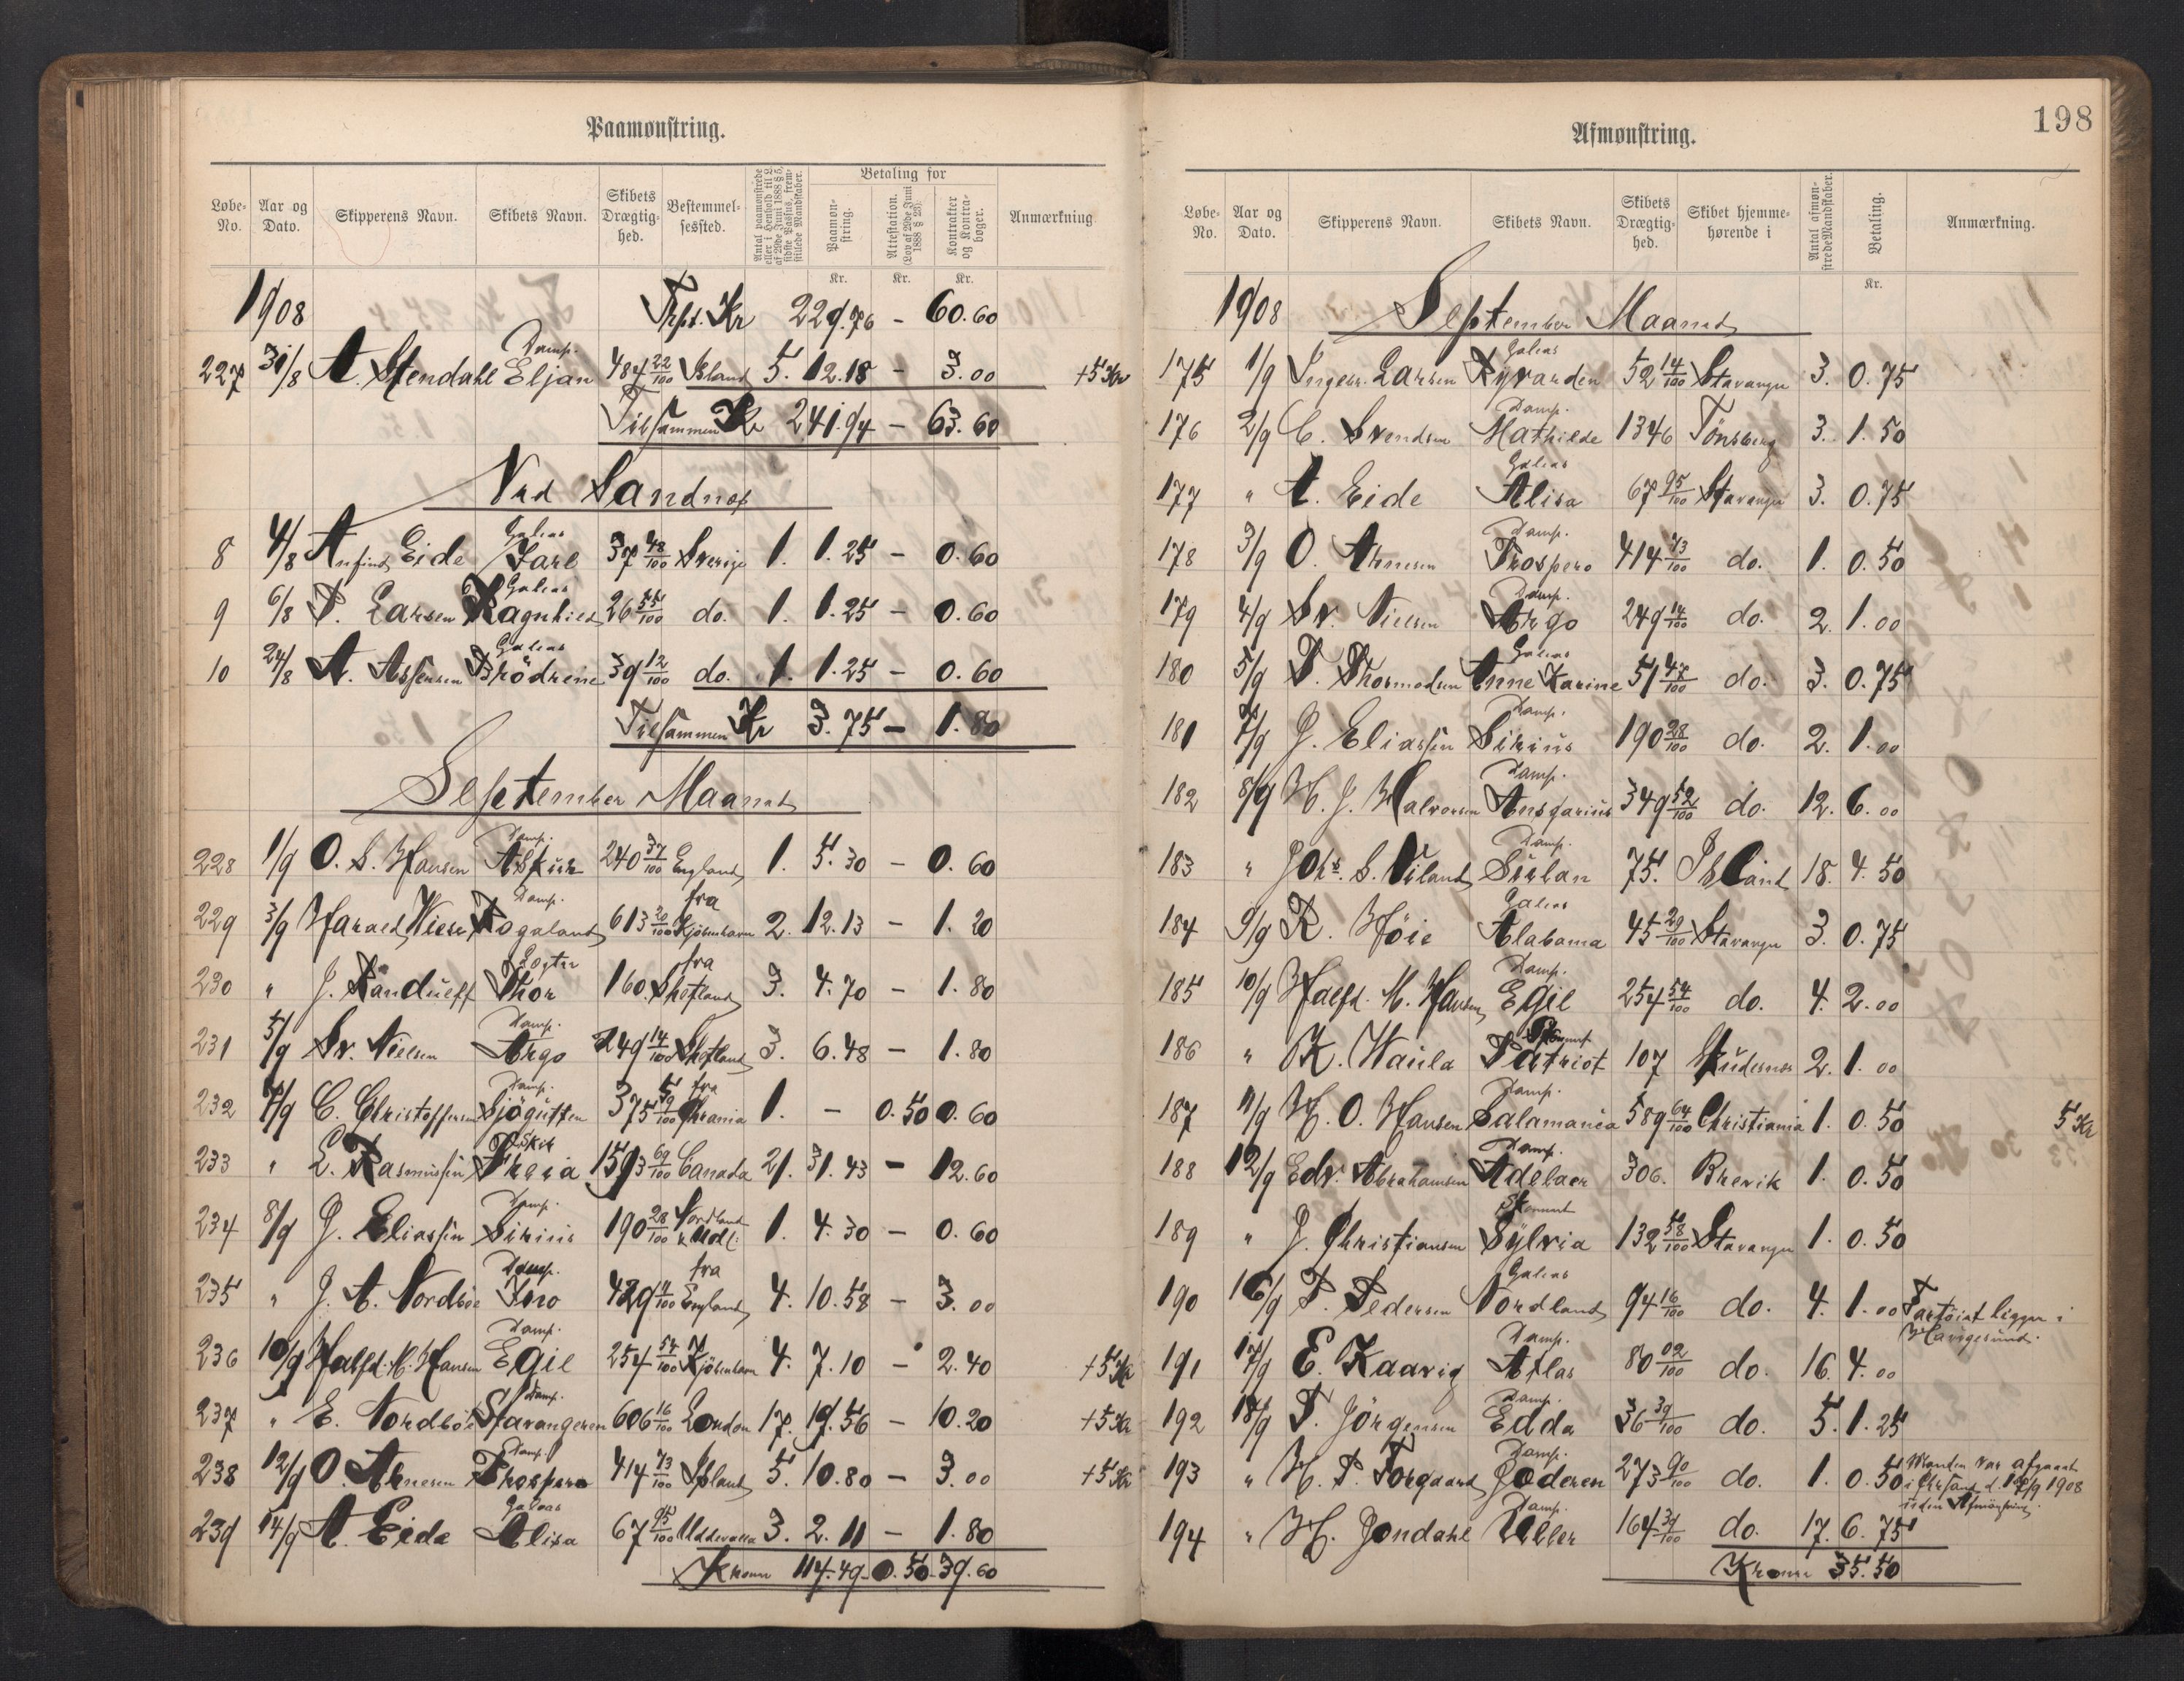 Paamønstring.
Løbe-No. Aar og Dato. Skipperens Navn. Skibets Navn. Skibets Drægtig-hed. Bestemmel-sessted. Antal paamønstrede eller i Henhold til L. af 29de Juni 1888 § 5, sidste Passus, frem-stillede Mandskaber. Betaling for Paamøn-string. Attestation. (Lov af 29de Juni 1888 § 23). Kontrakter og Kontra-bøger. Anmærkning
Kr. Kr. Kr.
1908 Trspt. Kr 229.76 - 60.60
227 31/8 A. Stendahl Damp. Eljan 484 22/100 Island 5. 12.18 - 3.00 +5 Kr
Tilsammen Kr 241.94 - 63.60
Ved Sandnes
8 4/8 Anfind Eide Galeas Jarl 37 48/100 Sverige 1. 1.25 - 0.60
9 6/8 P. Larsen Galeas Ragnhild 26 55/100 do. 1. 1.25 - 0.60
10 24/8 A. Assersen Galeas Brödrene 39 12/100 do. 1. 1.25 - 0.60
Tilsammen Kr 3.75 - 1.80
September Maaned
228 1/9 O. S. Hansen Damp. Askur 240 37/100 England 1. 5.30 - 0.60
229 3/9 Harald Wiese Damp. Rogaland 613 20/100 fra Kjöbenhavn 2. 12.13 - 1.20
230 " J. Thor 160. fra Shetland 3. 4.70 - 1.80
231 5/9 Sv. Nielsen Damp. Argo 249 14/100 Shetland 3. 6.48 - 1.80
232 7/9 C. Christoffersen Damp. Sjögutten 375 fra Chrania 1. - 0.50 0.60
233 " L. Rasmussen Skib Theia 1593 69/100 Canada 21. 31.43 - 12.60
234 8/9 G. Eliassen Damp. Sirius 190 28/100 Nordland & Udl. 1. 4.30 - 0.60
235 " J. A. Nordböe Damp. Juno 429 11/100 fra England 4. 10.58 - 3.00
236 10/9 Halfd. M. Hansen Damp. Egil 254 54/100 Kjöbenhavn 4. 7.10 - 2.40 +5 Kr
237 " E. Nordböe Damp. Stavangeren 606 16/100 London 17. 19.56 - 10.20 +5 Kr
238 12/9 O. Ahnesen Damp. Prospero 414 73/100 Island 5. 10.80 - 3.00 +5 Kr
239 14/9 A. Eide Galeas Alisa 67 95/100 Uddevalla 3. 2.11 - 1.80
Kroner 114.49 - 0.50 - 39.60
198
Afmønstring.
Løbe-No. Aar og Dato. Skipperens Navn. Skibets Navn. Skibets Drægtig-hed. Skibet hjemme-hørende i Antal afmøn-strede Mandskaber. Betaling. Anmærkning.
Kr.
1908 September Maaned
175 1/9 Ingebr. Larsen Galeas Ryvarden 52 14/100 Stavanger 3. 0.75
176 2/9 C. Svendsen Damp. Mathilde 1346 Tönsberg 3. 1.50
177 " A. Eide Galeas Alisa 67 95/100 Stavanger 3. 0.75
178 3/9 O. Ahnesen Damp. Prospero 414 73/100 do. 1. 0.50
179 4/9 Sv. Nielsen Damp. Argo 249 14/100 do. 2. 1.00
180 5/9 T. Thormodsen Galeas Anne Karine 51 47/100 do. 3. 0.75
181 7/9 G. Eliassen Damp. Sirius 190 28/100 do. 2. 1.00
182 8/9 H. J. Halvorsen Damp. Ansgarius 349 52/100 do. 12. 6.00
183 " Johs. S. Viland Damp. Sulan 75. Island 18. 4.50
184 9/9 R. Höie Galeas Alabama 45 29/100 Stavanger 3. 0.75
185 10/9 Halfd. M. Hansen Damp. Egil 254 54/100 do. 4. 2.00
186 " K. Waula Skonnert Patriot 107 Skudesnes 2. 1.00
187 11/9 H. O. Hansen Damp. Salamanca 589 64/100 Christiania 1. 0.50 5 Kr
188 12/9 Edv. Abrahamsen Damp. Adelaer 306. Brevik 1. 0.50
189 " J. Christiansen Skonnert Sylvia 132 58/100 Stavanger 1. 0.50
190 16/9 P. Pedersen Galeas Nordland 94 16/100 do. 4. 1.00 Fartöiet ligger i Haugesund.
191 17/9 E. Kaavig Damp. Atlas 80 02/100 do. 16. 4.00
192 18/9 T. Jörgensen Damp. Edda 36 39/100 do. 5. 1.25
193 " H. P. Torgaard Damp. Jæderen 273 90/100 do. 1. 0.50 Manden var afgaaet i Chrsand d. 18/9 1908 uden Afmönstring.
194 " H. Jondahl Damp. Uller 164 34/100 do. 17. 6.75
Kroner 35.50